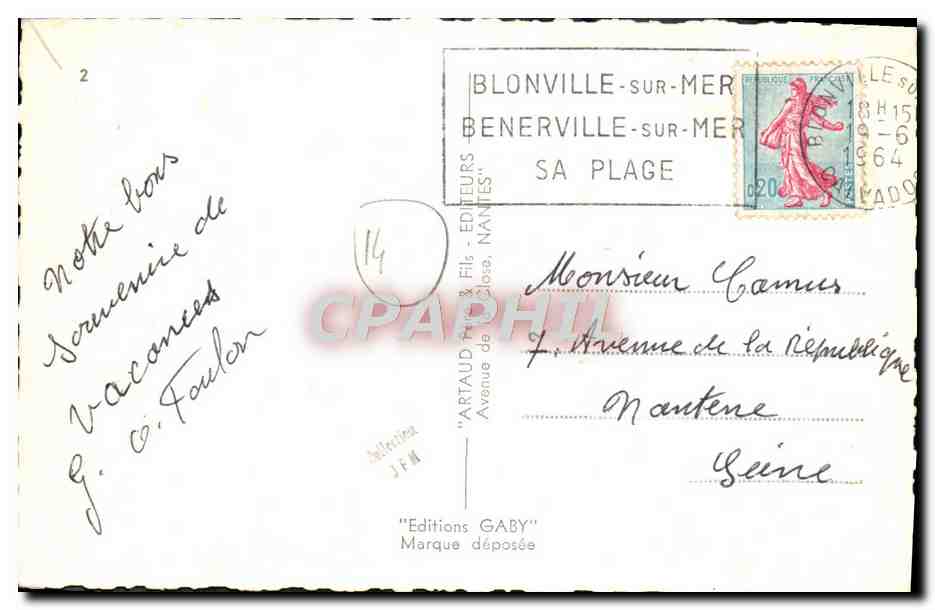 2
BLONVILLE-SUR-MER
BENERVILLE-SUR-MER
SA PLAGE
REPUBLIQUE FRANÇAISE
0,20
POSTES
BLONVILLE SU
H 15
-6
1964
ADOS
Notre bons
souvenire de
vacances
G. O. Foulon
14
"ARTAUD Père & Fils - EDITEURS
Avenue de la Close, NANTES"
CPAPHIL
Monsieur Camus
7. Avenue de la République
Nanterre
Seine
Collection
JFM
"Editions GABY"
Marque déposée